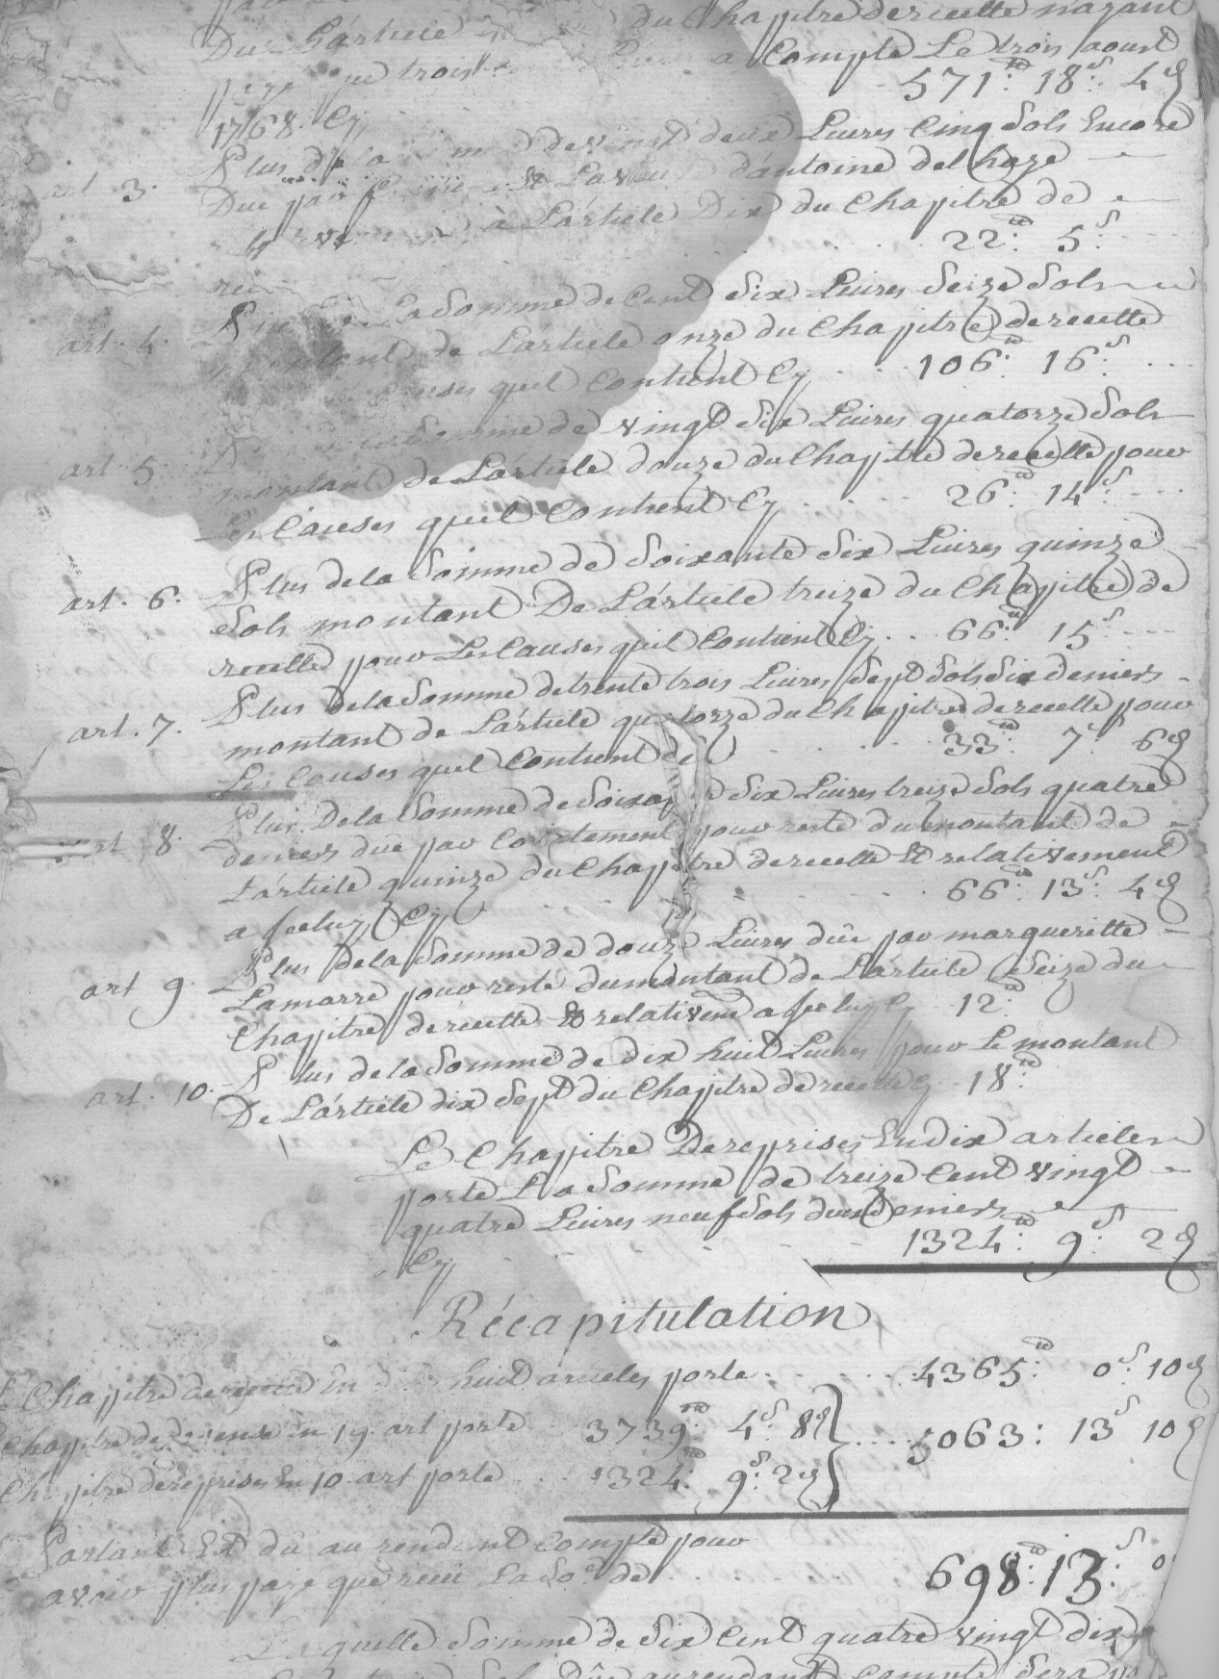 du Chapitre de recette n'ayant
Due L'article a Compte Le trois aoust
payé que trois 571.tt 18.s 4 d
1768. Cy
Plus de la vingt deux Livres Cinq Sols Encore
art 3. Due par d'antoine delhaze
à L'article Dix du Chapitre de
22.tt 5.s
La Somme de Cent Six Livres Seize Sols
art. 4. de L'article onze du Chapitre de recette
causes quil Contient Cy 106.tt 16.s
Somme de vingt Six Livres quatorze Sols
art. 5. montant de L'article douze du Chapitre de recette pour
Les Causes quil Contient Cy 26.tt 14.s
Plus de la Somme de Soixante Six Livres quinze
art. 6. Sols montant De L'article treize du Chapitre de
recette pour Les Causes quil Contient Cy 66.tt 15.s
Plus de la Somme de trente trois Livres Sept Sols Six deniers
art. 7. montant de L'article quatorze du Chapitre de recette pour
Les Causes quil Contient Cy 33.tt 7.s 6 d
Plus De la Somme de Soixante Six Livres treize Sols quatre
art 8. deniers due par pour reste du montant de
L'article quinze du Chapitre de recette & relativement
a Cy 66.tt 13.s 4 d
Plus de la Somme de douze Livres düe par margueritte
art 9. Lamarre pour reste du montant de L'article Seize du
Chapitre de recette & relativemt a Cy 12.tt
Plus de la Somme de dix huit Livres pour Le montant
art. 10. De L'article dix Sept du Chapitre de recette Cy 18.tt
Le Chapitre De reprises En dix articles
porte La Somme de treize Cent vingt
quatre Livres neuf Sols deux Deniers
Cy 1324.tt 9.s 2 d
Récapitulation
Chapitre de recette En dix huit articles porte 4365.tt 0.s 10 d
Chapitre de depense En 19 art porte 3739.tt 4.s 8 d
5063: 13 s 10 d
Chapitre de reprises En 10 art porte 1324.tt 9.s 2 d
Partant Est dü au rendant Compte pour
avoir plus payé que reçu La So.e de 698.tt 13.s 0
Laquelle Somme de Six Cent quatre vingt dix
Sols Düe au rendant Compte Sera